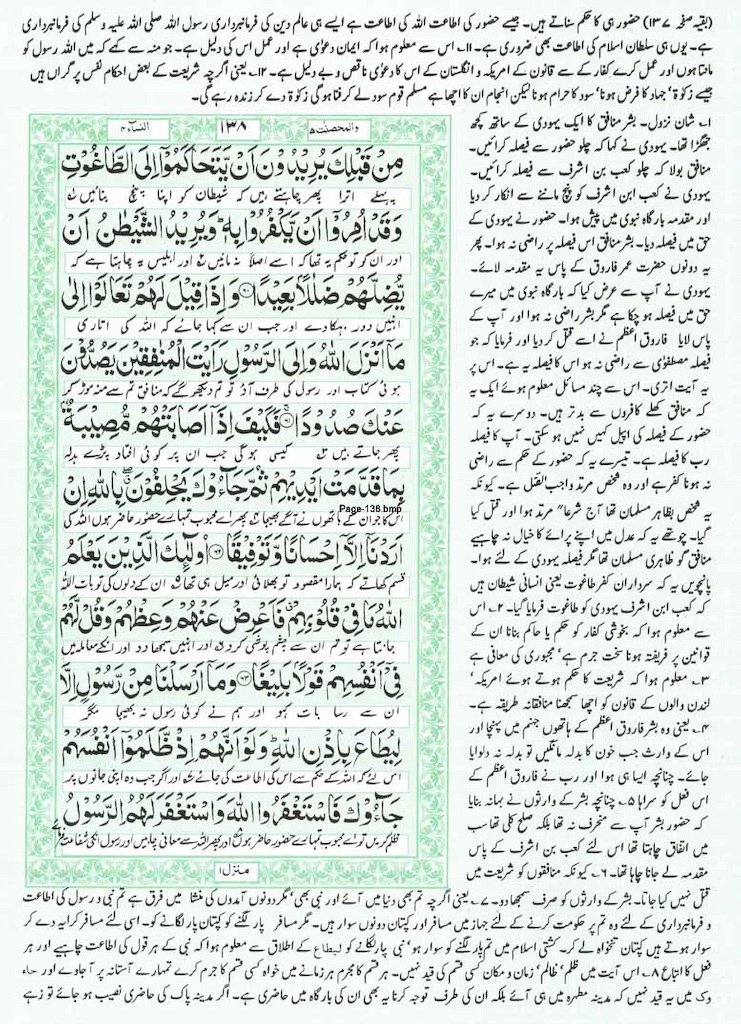 (بقیہ صفحہ ۱۳۷) حضور ہی کا حکم سناتے ہیں۔ جیسے حضور کی اطاعت اللہ کی اطاعت ہے ایسے ہی عالم دین کی فرمانبرداری رسول اللہ صلی اللہ علیہ وسلم کی فرمانبرداری
ہے۔ یوں ہی سلطان اسلام کی اطاعت بھی ضروری ہے۔ ۱۱۔ اس سے معلوم ہوا کہ ایمان دعوٰی ہے اور عمل اس کی دلیل ہے۔ جو منہ سے کہے کہ میں اللہ رسول کو
مانتا ہوں اور عمل کرے کفار کے سے قانون کے امریکہ و انگلستان کے اس کا دعوٰی ناقص و بے دلیل ہے۔ ۱۲۔ یعنی اگرچہ شریعت کے بعض احکام نفس پر گراں ہیں
جیسے زکوٰۃ، جہاد کا فرض ہونا، سود کا حرام ہونا لیکن انجام ان کا اچھا ہے مسلم قوم سود لے کر فنا ہو گی زکوٰۃ دے کر زندہ رہے گی۔
والمحصنت ۵
۱۳۸
النساء ۴
مِنْ قَبْلِكَ يُرِيْدُوْنَ اَنْ يَّتَحَاكَمُوْٓا اِلَى الطَّاغُوْتِ
پہلے اترا پھر چاہتے ہیں کہ شیطان کو اپنا پنچ بنائیں
وَقَدْ اُمِرُوْٓا اَنْ يَّكْفُرُوْا بِهٖ وَيُرِيْدُ الشَّيْطٰنُ اَنْ
اور ان کو تو حکم یہ تھا کہ اسے اصلاً نہ مانیں اور ابلیس یہ چاہتا ہے کہ
يُّضِلَّهُمْ ضَلٰلًا بَعِيْدًا ۶۰ وَاِذَا قِيْلَ لَهُمْ تَعَالَوْا اِلٰى
انہیں دور بہکا دے اور جب ان سے کہا جائے کہ اللہ کی اتاری
مَآ اَنْزَلَ اللّٰهُ وَاِلَى الرَّسُوْلِ رَاَيْتَ الْمُنٰفِقِيْنَ يَصُدُّوْنَ
ہوئی کتاب اور رسول کی طرف آؤ تو تم دیکھو گے کہ منافق تم سے منہ موڑ کر
عَنْكَ صُدُوْدًا ۶۱ فَكَيْفَ اِذَآ اَصَابَتْهُمْ مُّصِيْبَةٌۢ
پھر جاتے ہیں کیسی ہو گی جب ان پر کوئی افتاد پڑے بدلہ
بِمَا قَدَّمَتْ اَيْدِيْهِمْ ثُمَّ جَآءُوْكَ يَحْلِفُوْنَ بِاللّٰهِ اِنْ
اس کا جو ان کے ہاتھوں نے آگے بھیجا پھر اے محبوب تمہارے حضور حاضر ہوں اللہ کی
Page-138.bmp
اَرَدْنَآ اِلَّآ اِحْسَانًا وَّتَوْفِيْقًا ۶۲ اُولٰٓئِكَ الَّذِيْنَ يَعْلَمُ
قسم کھاتے کہ ہمارا مقصود تو بھلائی اور میل ہی تھا ان کے دلوں کی تو بات اللہ
اللّٰهُ مَا فِيْ قُلُوْبِهِمْ فَاَعْرِضْ عَنْهُمْ وَعِظْهُمْ وَقُلْ لَّهُمْ
جانتا ہے تو تم ان سے چشم پوشی کرو اور انہیں سمجھا دو اور انکے معاملہ میں
فِيْٓ اَنْفُسِهِمْ قَوْلًۢا بَلِيْغًا ۶۳ وَمَآ اَرْسَلْنَا مِنْ رَّسُوْلٍ اِلَّا
ان سے رسا بات کہو اور ہم نے کوئی رسول نہ بھیجا مگر
لِيُطَاعَ بِاِذْنِ اللّٰهِ وَلَوْ اَنَّهُمْ اِذْ ظَّلَمُوْٓا اَنْفُسَهُمْ
اس لئے کہ اللہ کے حکم سے اس کی اطاعت کی جائے اور اگر جب وہ اپنی جانوں پر
جَآءُوْكَ فَاسْتَغْفَرُوا اللّٰهَ وَاسْتَغْفَرَ لَهُمُ الرَّسُوْلُ
ظلم کریں تو اے محبوب تمہارے حضور حاضر ہوں پھر اللہ سے معافی چاہیں اور رسول انکی شفاعت
منزل ۱
۱۔ شان نزول۔ بشر منافق کا ایک یہودی کے ساتھ کچھ
جھگڑا تھا۔ یہودی نے کہا کہ چلو حضور سے فیصلہ کرائیں۔
منافق بولا کہ چلو کعب بن اشرف سے فیصلہ کرائیں۔
یہودی نے کعب ابن اشرف کو پنچ ماننے سے انکار کر دیا
اور مقدمہ بارگاہ نبوی میں پیش ہوا۔ حضور نے یہودی کے
حق میں فیصلہ دیا۔ بشر منافق اس فیصلہ پر راضی نہ ہوا۔ پھر
یہ دونوں حضرت عمر فاروق کے پاس یہ مقدمہ لائے۔
یہودی نے آپ سے عرض کیا کہ بارگاہ نبوی میں میرے
حق میں فیصلہ ہو چکا ہے مگر بشر راضی نہ ہوا اور آپ کے
پاس لایا فاروق اعظم نے اسے قتل کر دیا اور فرمایا کہ جو
فیصلہ مصطفوی سے راضی نہ ہو اس کا فیصلہ یہ ہے۔ اس پر
یہ آیت اتری۔ اس سے چند مسائل معلوم ہوئے ایک یہ
کہ منافق کھلے کافروں سے بدتر ہیں۔ دوسرے یہ کہ
حضور کے فیصلہ کی اپیل کہیں نہیں ہو سکتی۔ آپ کا فیصلہ
رب کا فیصلہ ہے۔ تیسرے یہ کہ حضور کے حکم سے راضی
نہ ہونا کفر ہے اور وہ شخص مرتد واجب القتل ہے۔ کیونکہ
یہ شخص بظاہر مسلمان تھا آج شرعاً مرتد ہوا اور قتل کیا
گیا۔ چوتھے یہ کہ عدل میں اپنے پرائے کا خیال نہ چاہیے
منافق گو ظاہری مسلمان تھا مگر فیصلہ یہودی کے لئے ہوا۔
پانچویں یہ کہ سرداران کفر طاغوت یعنی انسانی شیطان ہیں
کہ کعب ابن اشرف یہودی کو طاغوت فرمایا گیا۔ ۲۔ اس
سے معلوم ہوا کہ بخوشی کفار کو حکم یا حاکم بنانا ان کے
قوانین پر فریفتہ ہونا سخت جرم ہے، مجبوری کی معافی ہے
۳۔ معلوم ہوا کہ شریعت کا حکم ہوتے ہوئے امریکہ،
لندن والوں کے قانون کو اچھا سمجھنا منافقانہ طریقہ ہے۔
۴۔ یعنی وہ بشر فاروق اعظم کے ہاتھوں جہنم میں پہنچا اور
اس کے وارث جب خون کا بدلہ مانگیں تو بدلہ نہ دلوایا
جائے۔ چنانچہ ایسا ہی ہوا اور رب نے فاروق اعظم کے
اس فعل کو سراہا ۵۔ چنانچہ بشر کے وارثوں نے بہانہ بنایا
کہ حضور بشر آپ سے منحرف نہ تھا بلکہ صلح کلی تھا سب
میں اتفاق چاہتا تھا اس لئے کعب بن اشرف کے پاس
مقدمہ لے جانا چاہتا تھا۔ ۶۔ کیونکہ منافقوں کو شریعت میں
قتل نہیں کیا جاتا۔ بشر کے وارثوں کو صرف سمجھا دو۔ ۷۔ یعنی اگرچہ تم بھی دنیا میں آئے اور نبی بھی، مگر دونوں آمدوں کی منشا میں فرق ہے تم نبی و رسول کی اطاعت
و فرمانبرداری کے لئے وہ تم پر حکومت کرنے کے لئے جہاز میں مسافر اور کپتان دونوں سوار ہیں۔ مگر مسافر پار لگنے کو کپتان پار لگانے کو۔ اسی لئے مسافر کرایہ دے کر
سوار ہوتے ہیں کپتان تنخواہ لے کر۔ کشتی اسلام میں تم پار لگنے کو سوار ہو، نبی پار لگانے کو لیطاع کے اطلاق سے معلوم ہوا کہ نبی کے ہر قول کی اطاعت چاہیے اور ہر
فعل کا اتباع ۸۔ اس آیت میں ظلم، ظالم، زمان و مکان کسی قسم کی قید نہیں۔ ہر قسم کا مجرم ہر زمانے میں خواہ کسی قسم کا جرم کرے تمہارے آستانہ پر آ جاوے اور جاء
وک میں یہ قید نہیں کہ مدینہ مطہرہ میں ہی آئے بلکہ ان کی طرف توجہ کرنا یہ بھی ان کی بارگاہ میں حاضری ہے۔ اگر مدینہ پاک کی حاضری نصیب ہو جائے تو زہے